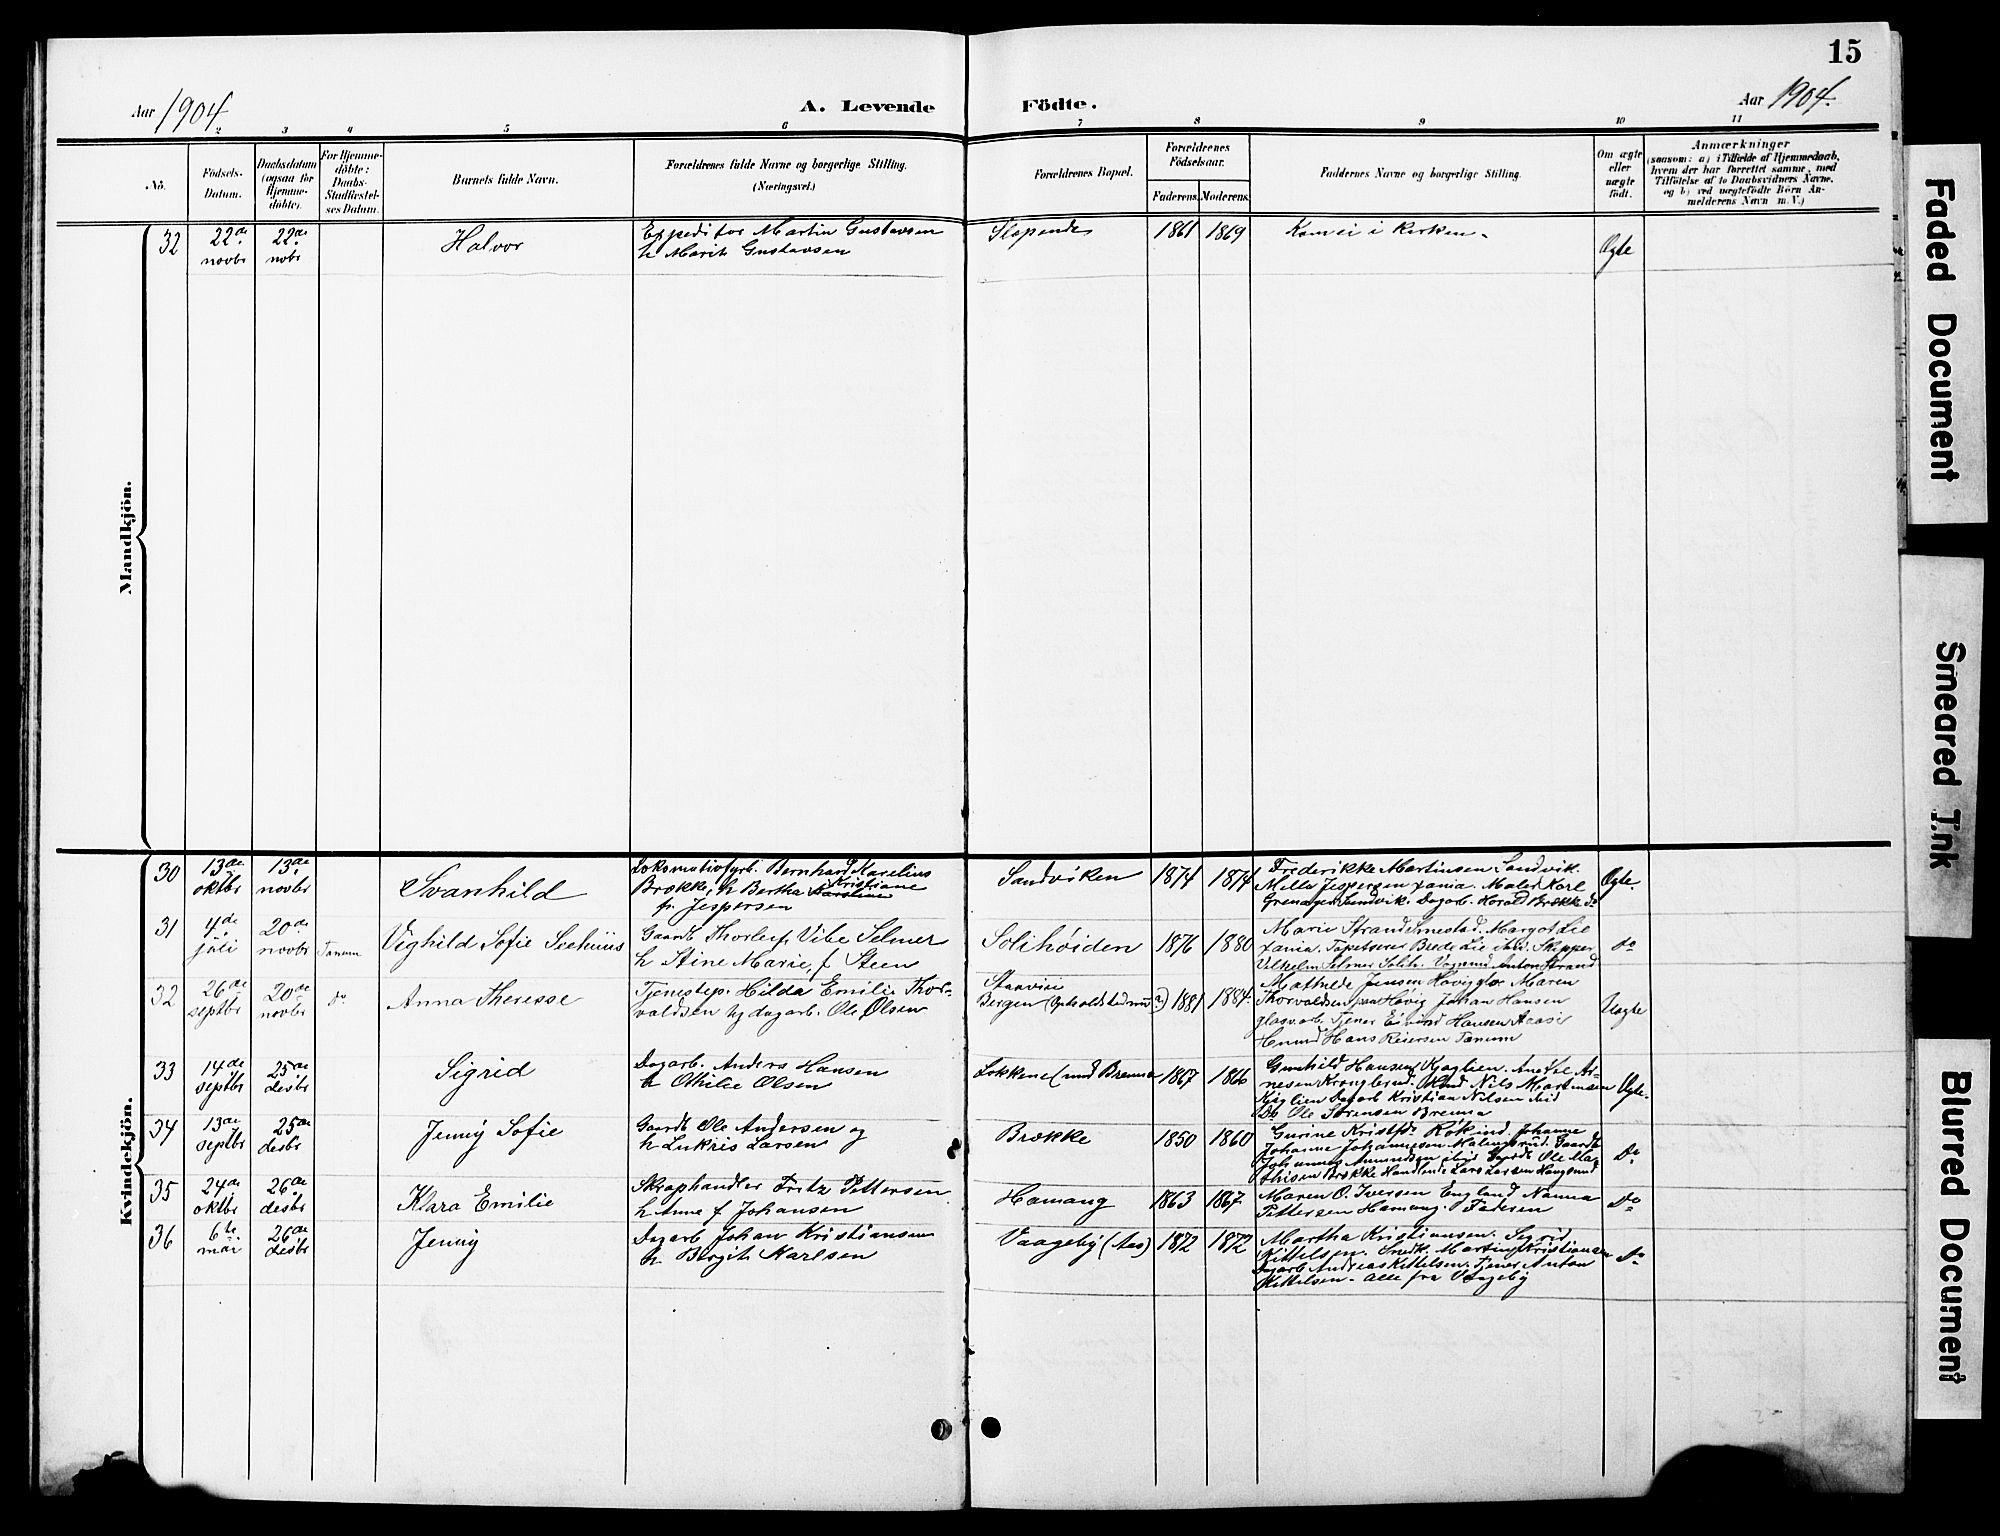 15
Aar 1904
A. Levende Födte.
Aar 1904.
2 3 4 5 6 7 8 9 10 11
No.
Födsels-
Datum.
Daabsdatum
(ogsaa for
Hjemme-
döbte).
For Hjemme-
döbte:
Daabs-
Stadfæstel-
ses Datum.
Barnets fulde Navn.
Forældrenes fulde Navne og borgerlige Stilling.
(Næringsvei.)
Forældrenes Bopæl.
Forældrenes
Födselsaar.
Faderens. Moderens.
Faddernes Navne og borgerlige Stilling.
Om ægte
eller
uægte
födt.
Anmærkninger
(saasom: a) i Tilfælde af Hjemmedaab,
hvem der har forrettet samme, med
Tilföielse af to Daabsvidners Navne,
og b) ved uægtefödte Börn An-
melderens Navn m. V.)
Mandkjön.
32
22de
novbr
22de
novbr
Halvor
Expeditör Martin Gustavsen
h Marit Gustavsen
Slependen
1861 1869
Kom ei i kirken.
Ægte
Kvindekjön.
30
13de
oktbr
13de
novbr
Svanhild
Lokomotivfyrb. Bernhard Marelius
Brække, h Bertha Kristiane
f. Jespersen
Sandviken
1874 1874
Frederikke Martinsen Sandvik.
Milla Jespersen xania. Maler Karl
Sandvik. Dagarb. Harald Brække do
Ægte
31
4de
juli
20de
novbr
Tanum
Vighild Sofie Seehuus
Gaardb Thorleif Vibe Selmer
h Stine Marie, f Steen
Solihøiden
1876 1880
Marie Strand Smestad. Margot Lie
xania. Tapetserer Brede Lie ibid. Skipper
Vilhelm Selmer Solih. Anton Strand
do
32
26de
septbr
20de
novbr
do
Anna Theresse
Tjenestep. Hilda Emilie Thor-
valdsen Ug dagarb. Ole Olsen
Staavivi
Bergen (Opholdsted nu?)
1881 1884
Mathilde Jensen Høvig Maren
Thorvaldsen Høvig Johan Hansen
glasvarb. Tjener Eivind Hansen
Hans Reiersen Tanum
Uægte
33
14de
septbr
25de
desbr
Sigrid
Dagarb. Anders Hansen
h Othilie Olsen
Løkkene (nd Brenna
1867 1866
Gunhild Hansen Kjaglien. Ar-
nesen Krogle Nils Martinsen
Kjaglien Dagarb Kristian Nilsen ibid
Ole Sørensen Brenna
Ægte.
34
13de
septbr
25de
desbr
Jenny Sofie
Gaardb Ole Andersen og
h Lukris Larsen
Brække
1850 1860
Gurine Kristofs Johanne
Johanne Johannesen Gaardb
Johannes Amundsen ibid Ole Ma-
thisen Brække Handlende Lars Larsen Haugsund
Do
35
24de
oktbr
26de
desbr
Klara Emilie
Skraphandler Fritz Pettersen
h Anne f Johansen
Hamang
1863 1867
Maren O. Iversen England Nanna
Pettersen Hamang. Faderen
Do
36
6te
mai
26de
desbr
Jenny
Dagarb Johan Kristiansen
h Bergit Karlsen
Vaageby (Aas)
1872 1872
Martha Kristiansen. Sigrid
Kittelsen. Snedk. Martin Kristiansen
Dagarb Andreas Kittelsen. Tjener Anton
Kittelsen - alle fra Vaageby
Do
Faded Document
Smeared Ink
Blurred Document